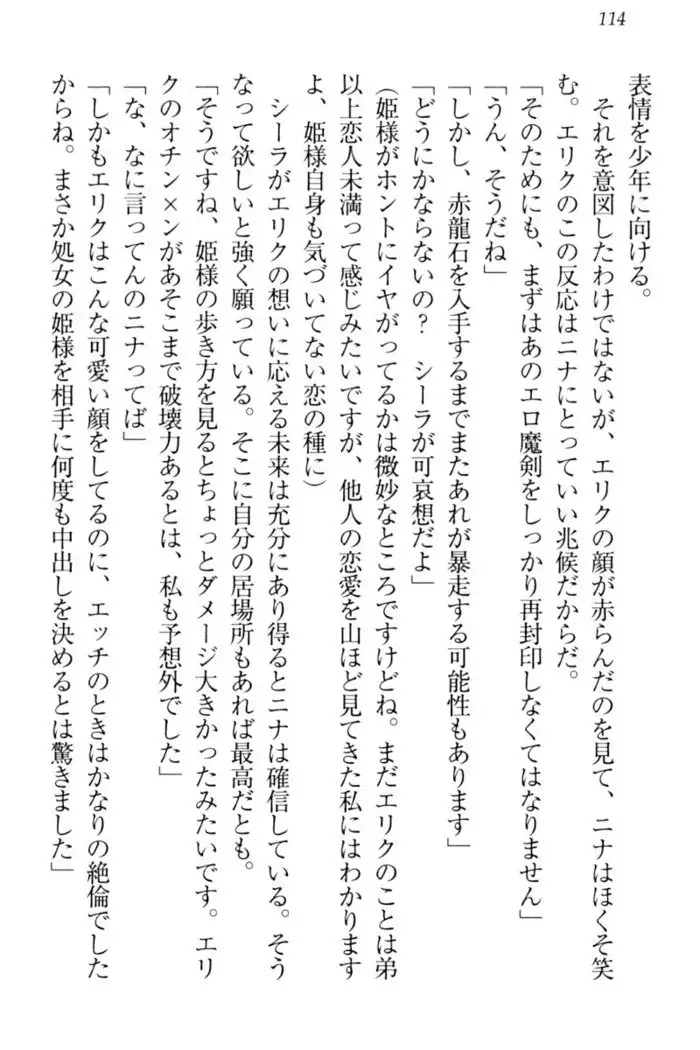 114
表情を少年に向ける。
それを意図したわけではないが、エリクの顔が赤らんだのを見て、ニナはほくそ笑
む。エリクのこの反応はニナにとっていい兆候だからだ。
「そのためにも、まずはあのエロ魔剣をしっかり再封印しなくてはなりません」
「うん、そうだね」
「しかし、赤龍石を入手するまでまたあれが暴走する可能性もあります」
「どうにかならないの？　シーラが可哀想だよ」
（姫様がホントにイヤがってるかは微妙なところですけどね。まだエリクのことは弟
以上恋人未満って感じみたいですが、他人の恋愛を山ほど見てきた私にはわかります
よ、姫様自身も気づいてない恋の種に）
シーラがエリクの想いに応える未来は充分にあり得るとニナは確信している。そう
なって欲しいと強く願っている。そこに自分の居場所もあれば最高だとも。
「そうですね、姫様の歩き方を見るとちょっとダメージ大きかったみたいです。エリ
クのオチン×ンがあそこまで破壊力あるとは、私も予想外でした」
「な、なに言ってんのニナってば」
「しかもエリクはこんな可愛い顔をしてるのに、エッチのときはかなりの絶倫でした
からね。まさか処女の姫様を相手に何度も中出しを決めるとは驚きました」